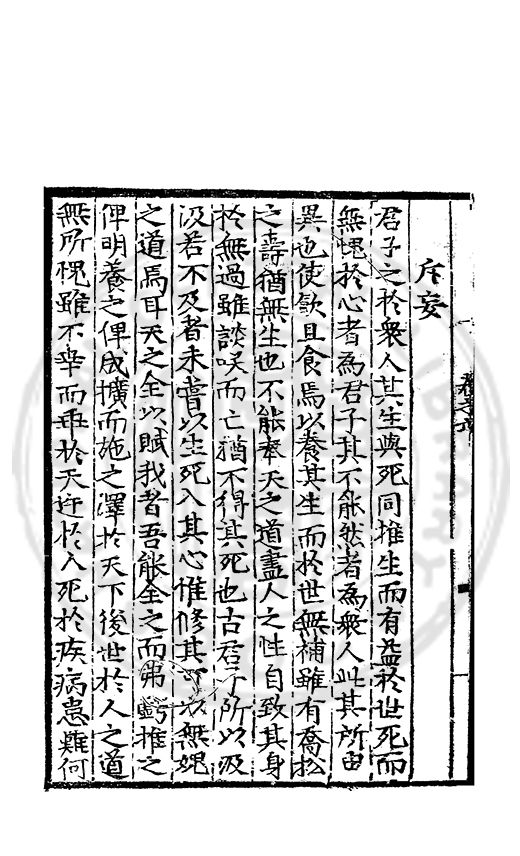 卷之六
斥妄
君子之於衆人其生與死同推生而有益於世死而
無愧於心者為君子其不能然者為衆人此其所由
異也使飲且食焉以養其生而於世無補雖有喬松
之壽猶無生也不能奉天之道盡人之性自致其身
於無過雖談咲而亡猶不得其死也古君子所以汲
汲若不及者未嘗以生死入其心惟修其可以無媿
之道焉耳天之全以賦我者吾能全之而弗虧推之
俾明養之俾成擴而施之澤於天下後世於人之道
無所愧雖不幸而乖於天迕於人死於疾病患難何